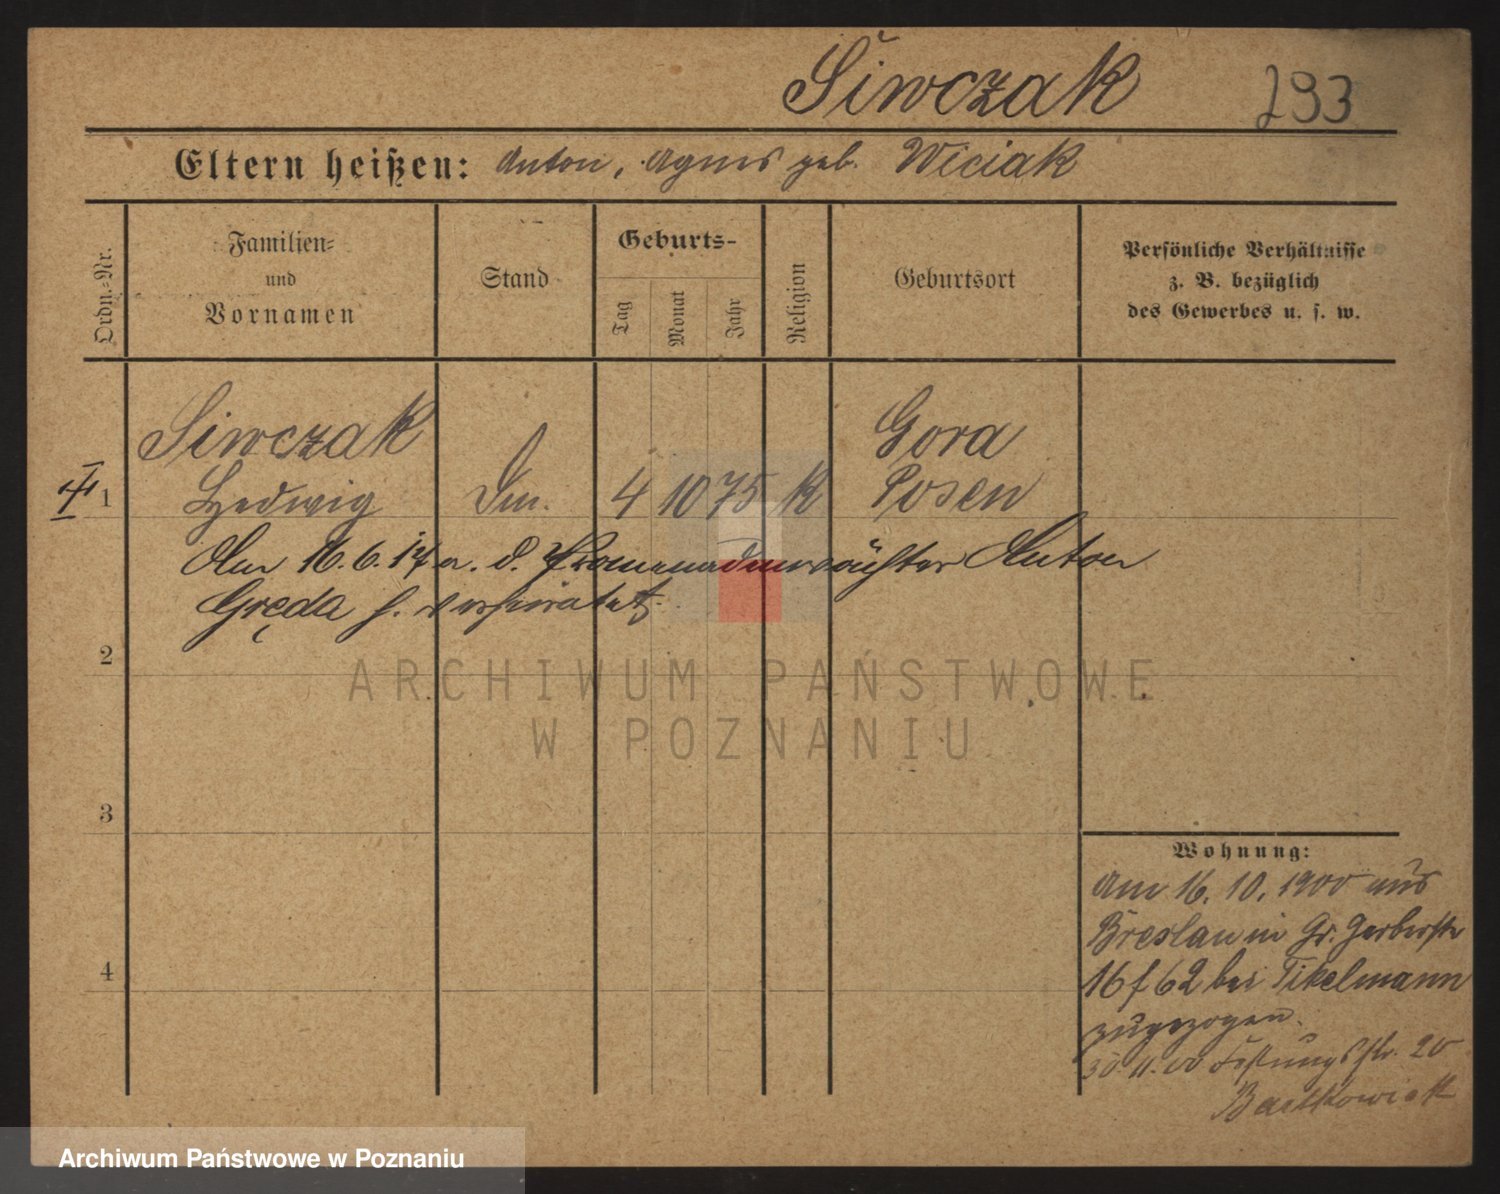 Siwczak 293
Eltern heißen: Anton, Agnes geb. Wiciak
Ordn.-Nr.
Familien-
und
Vornamen
Stand
Geburts-
Tag
Monat
Jahr
Religion
Geburtsort
Persönliche Verhältnisse
z. B. bezüglich
des Gewerbes u. s. w.
Siwczak Gora
1 Hedwig 4 10 75 K Posen
Am 16.6.14 a. d. Promenadenwächter Anton
Gręda h. verheiratet.
2
ARCHIWUM PAŃSTWOWE
W POZNANIU
3
Wohnung:
Am 16. 10. 1900 aus
Breslau in Gr. Gerberstr
16 f 62 bei Tikelmann
zugezogen.
30.11.00 Festungsstr. 20
Bartkowiak
4
Archiwum Państwowe w Poznaniu